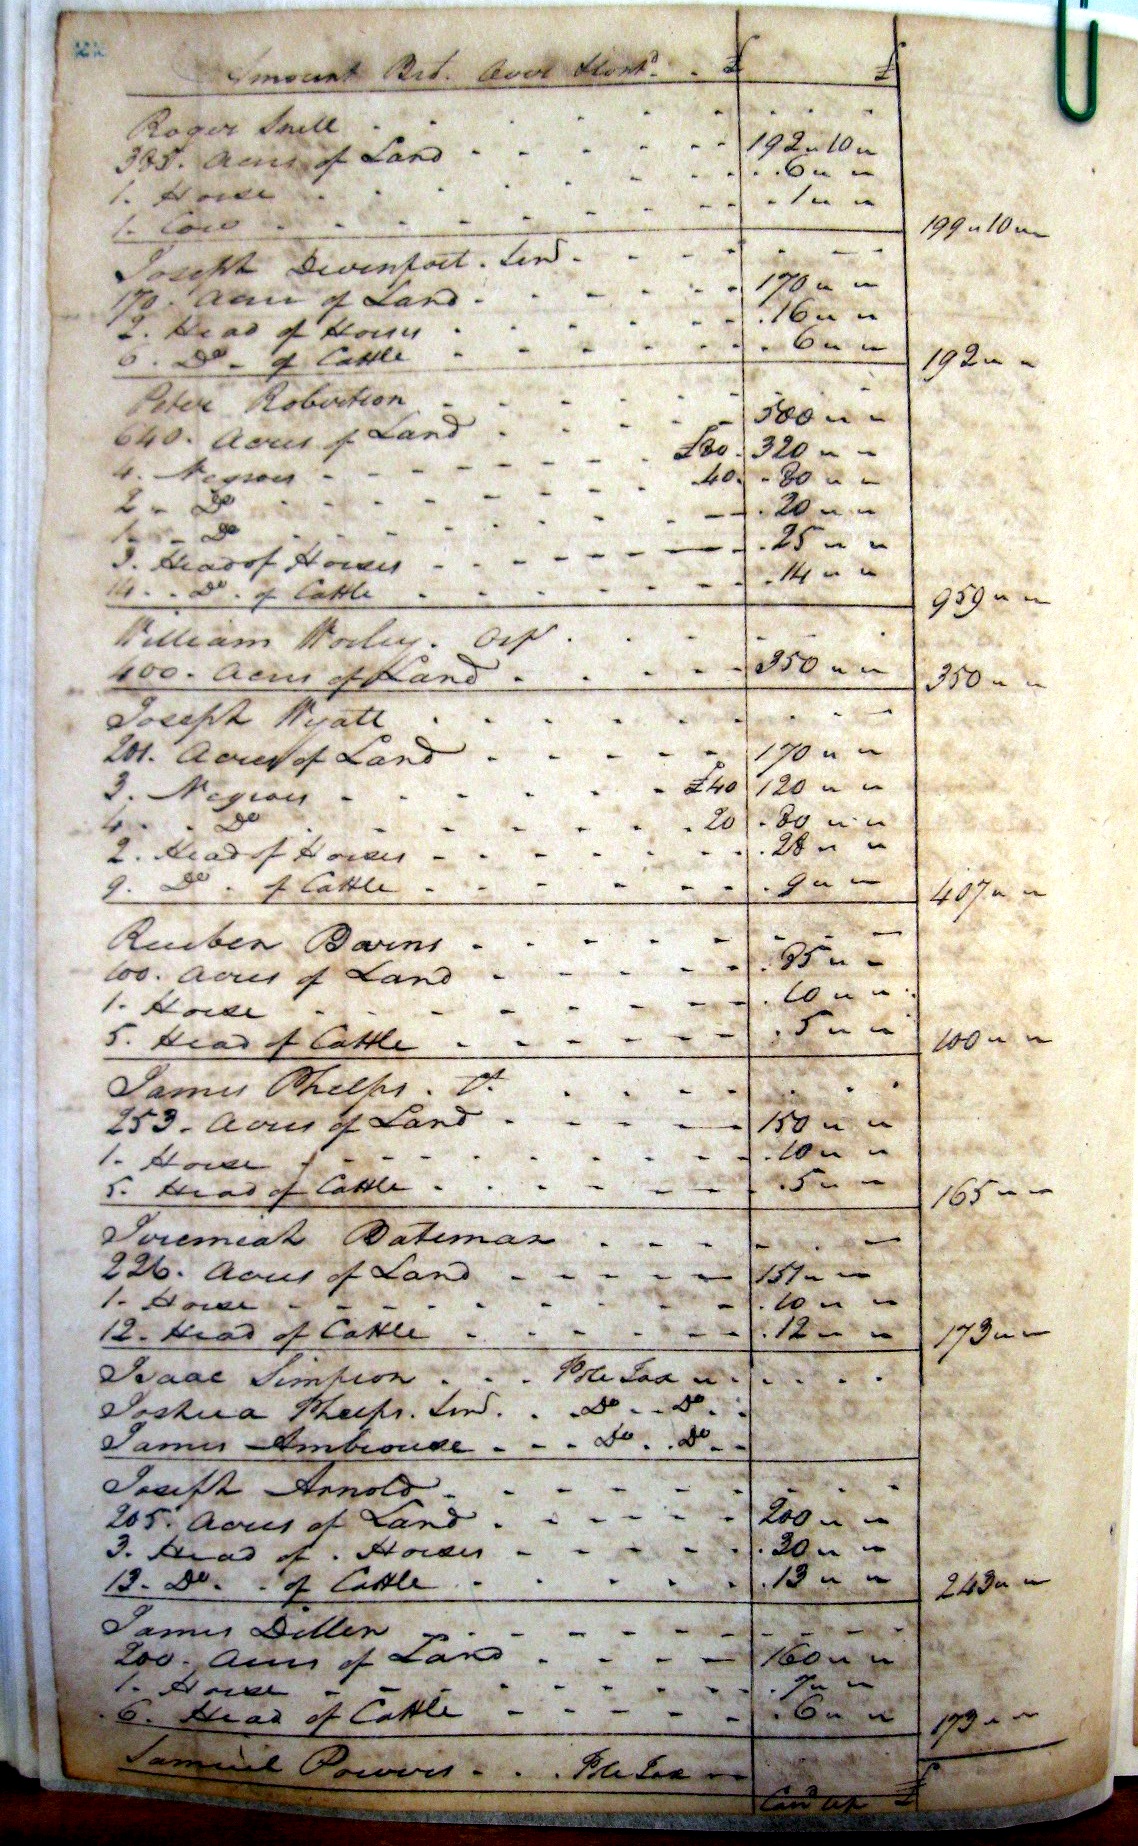 Amount Brt. Over £ £
Roger Snell
385. Acres of Land 192 " 10 "
1. Horse 6 " "
1. Cow 1 " "
199 " 10 "
Joseph Devenport. Senr.
170. Acres of Land 170 " "
2. Head of Horses 16 " "
6. Do. of Cattle 6 " "
192 " "
Peter Robertson
640. Acres of Land 500 " "
4. Negroes £80. 320 " "
2. Do 40. 80 " "
1. Do 20 " "
3. Head of Horses 25 " "
14. Do. of Cattle 14 " "
959 " "
William Worley.
400. Acres of Land 350 " "
350 " "
Joseph Wyatt
201. Acres of Land 170 " "
3. Negroes £40 120 " "
4. Do 20 80 " "
2. Head of Horses 28 " "
9. Do. of Cattle 9 " "
407 " "
Reuben Barns
100. Acres of Land 85 " "
1. Horse 10 " "
5. Head of Cattle 5 " "
100 " "
James Phelps.
253. Acres of Land 150 " "
1. Horse 10 " "
5. Head of Cattle 5 " "
165 " "
Jeremiah Bateman
226. Acres of Land 151 " "
1. Horse 10 " "
12. Head of Cattle 12 " "
173 " "
Isaac Simpson Pole Tax "
Joshua Phelps. Senr. Do Do
James Ambrouse Do Do
Joseph Arnold
205. Acres of Land 200 " "
3. Head of Horses 30 " "
13. Do. of Cattle 13 " "
243 " "
James Dillen
200. Acres of Land 160 " "
1. Horse 7 " "
6. Head of Cattle 6 " "
173 " "
Samuel Powers Pole Tax "
Card up £